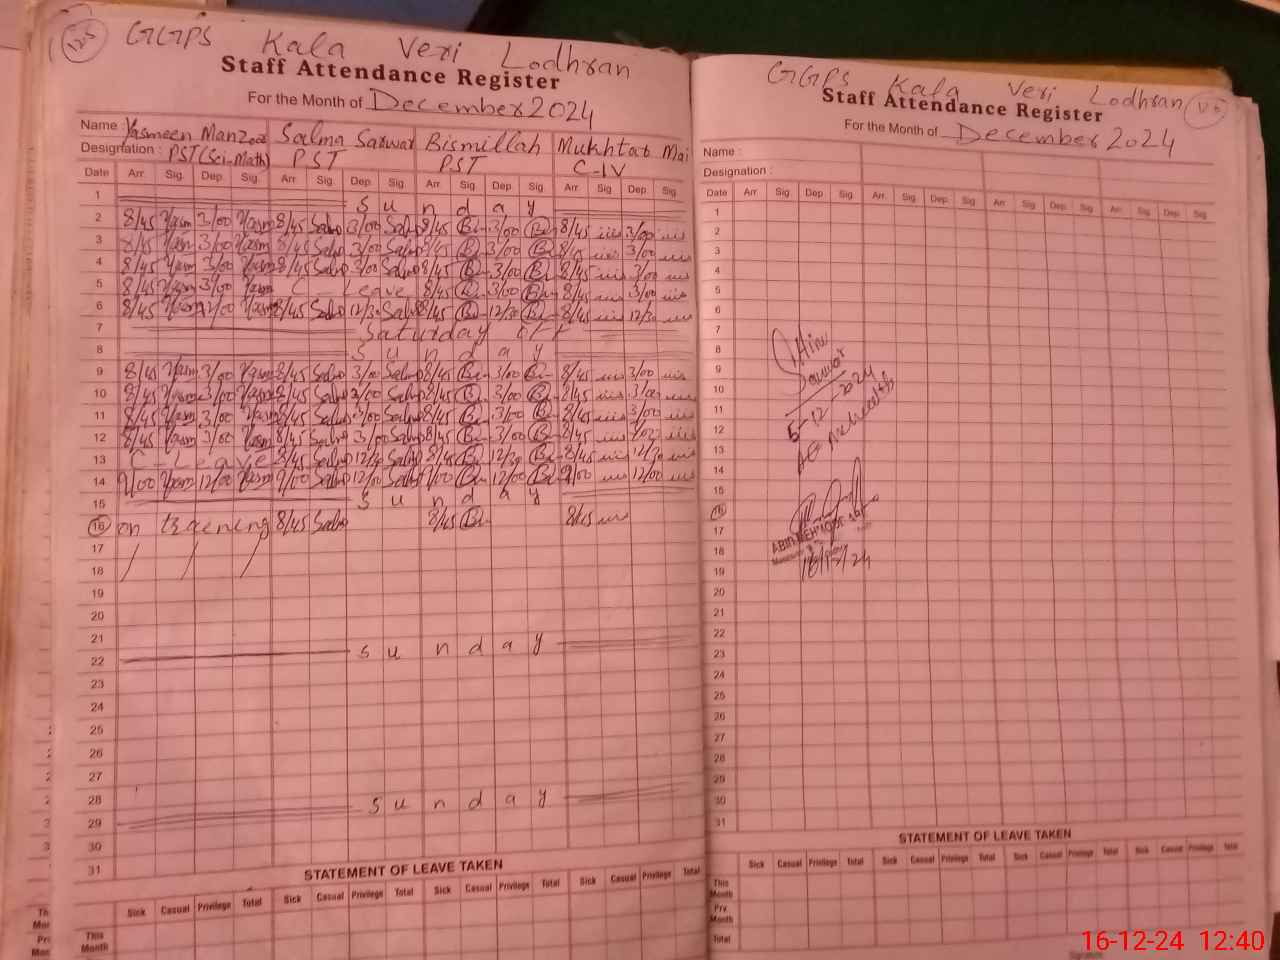 125
GGPS Kala Veri Lodhran
Staff Attendance Register
For the Month of December 2024
Name : Yasmeen Manzoor Salma Sarwar Bismillah Mukhtar Mai
Designation : PST (Sci-Math) PST PST C-IV
Date Arr. Sig. Dep. Sig. Arr. Sig. Dep. Sig. Arr. Sig. Dep. Sig. Arr. Sig. Dep. Sig.
1 Sunday
2 8/45 Yasm 3/00 Yasm 8/45 Salm 3/00 Salm 8/45 Bi 3/00 Bi 8/45 3/00
3 8/45 Yasm 3/00 Yasm 8/45 Salm 3/00 Salm 8/45 Bi 3/00 Bi 8/45 3/00
4 8/45 Yasm 3/00 Yasm 8/45 Salm 3/00 Salm 8/45 Bi 3/00 Bi 8/45 3/00
5 8/45 Yasm 3/00 Yasm C - Leave 8/45 Bi 3/00 Bi 8/45 3/00
6 8/45 Yasm 12/00 Yasm 8/45 Salm 12/30 Salm 8/45 Bi 12/30 Bi 8/45 12/30
7 Saturday off
8 Sunday
9 8/45 Yasm 3/00 Yasm 8/45 Salm 3/00 Salm 8/45 Bi 3/00 Bi 8/45 3/00
10 8/45 Yasm 3/00 Yasm 8/45 Salm 3/00 Salm 8/45 Bi 3/00 Bi 8/45 3/00
11 8/45 Yasm 3/00 Yasm 8/45 Salm 3/00 Salm 8/45 Bi 3/00 Bi 8/45 3/00
12 8/45 Yasm 3/00 Yasm 8/45 Salm 3/00 Salm 8/45 Bi 3/00 Bi 8/45 3/00
13 C - Leave 8/45 Salm 12/30 Salm 8/45 Bi 12/30 Bi 8/45 12/30
14 9/00 Yasm 12/00 Yasm 9/00 Salm 12/00 Salm 9/00 Bi 12/00 Bi 9/00 12/00
15 Sunday
16 on traening 8/45 Salm 8/45 Bi 8/45
17
18
19
20
21
22 Sunday
23
24
25
26
27
28
29 Sunday
30
31
STATEMENT OF LEAVE TAKEN
Sick Casual Privilege Total Sick Casual Privilege Total Sick Casual Privilege Total Sick Casual Privilege Total
This Month
GGPS Kala Veri Lodhran
Staff Attendance Register
For the Month of December 2024
Name :
Designation :
Date Arr. Sig. Dep. Sig. Arr. Sig. Dep. Sig. Arr. Sig. Dep. Sig. Arr. Sig. Dep. Sig.
1
2
3
4
5
6
7
8
9
10
11
12
13
14
15
16
17
18
19
20
21
22
23
24
25
26
27
28
29
30
31
Sarwar
5-12-2024
16/12/24
STATEMENT OF LEAVE TAKEN
Sick Casual Privilege Total Sick Casual Privilege Total Sick Casual Privilege Total Sick Casual Privilege Total
This Month
Prv. Month
Total
16-12-24 12:40